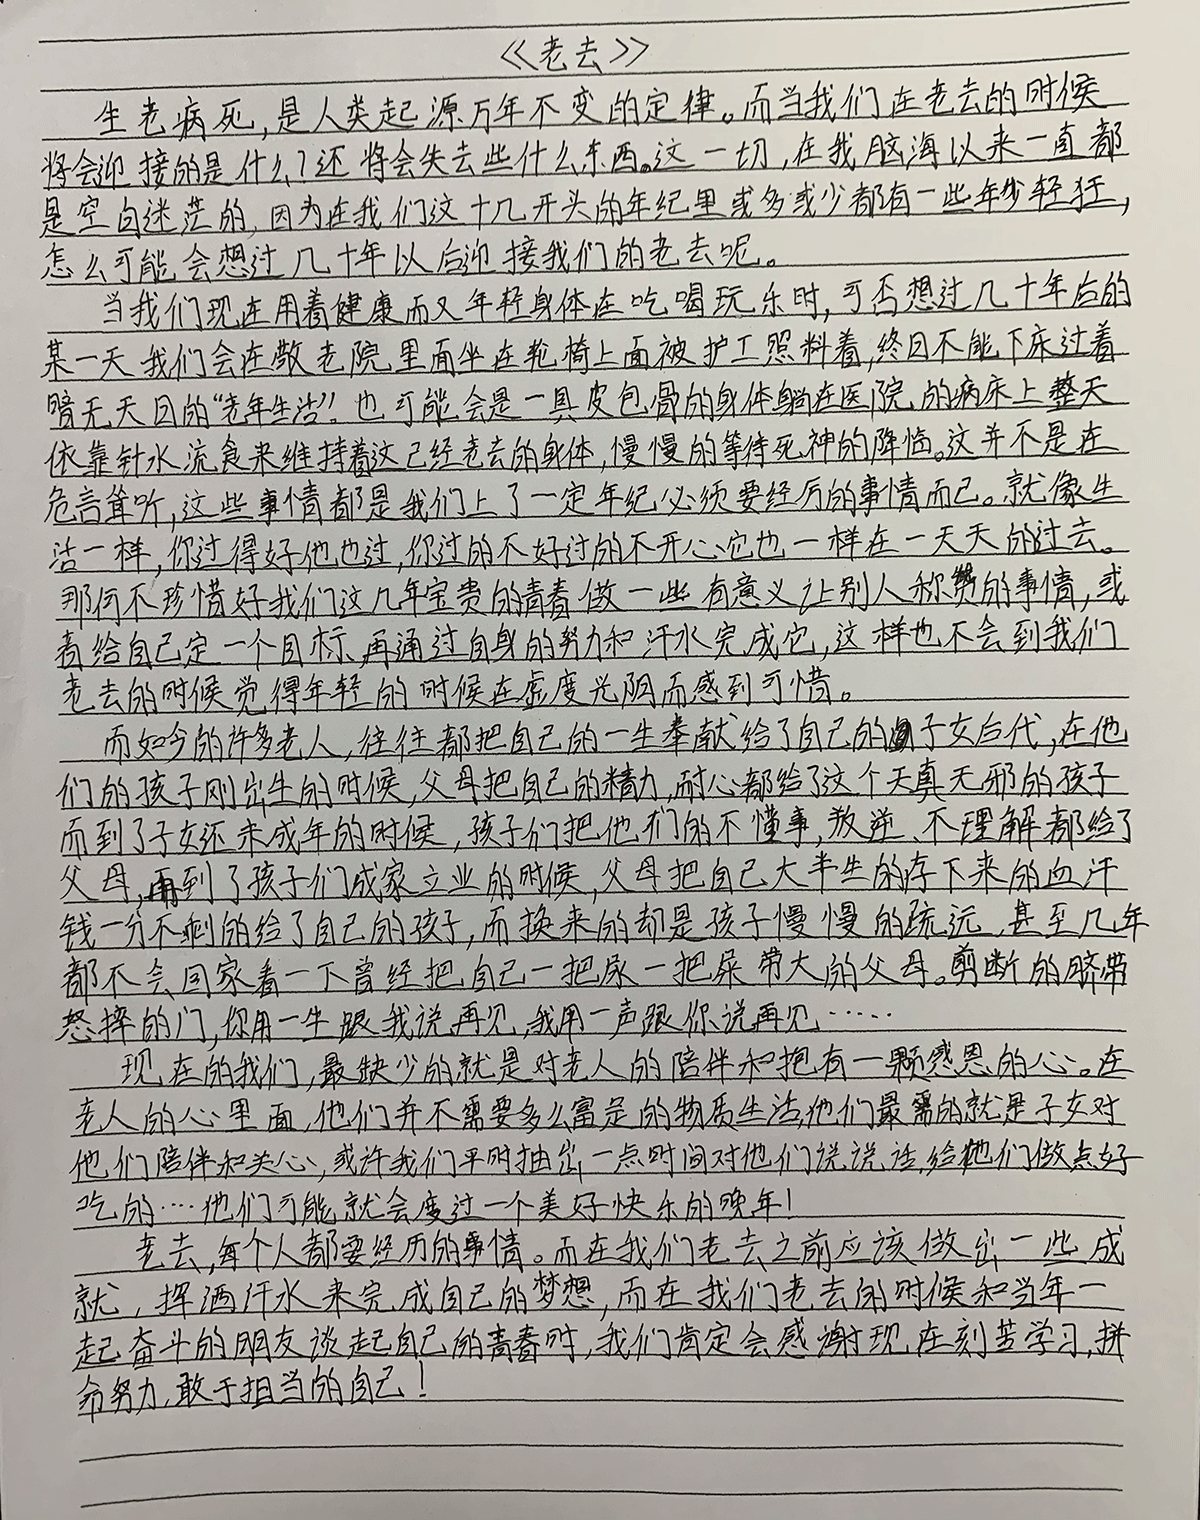 《老去》
生老病死，是人类起源万年不变的定律。而当我们在老去的时候
将会迎接的是什么？还将会失去些什么东西。这一切，在我脑海以来一直都
是空白迷茫的，因为在我们这十几开头的年纪里或多或少都有一些年少轻狂，
怎么可能会想过几十年以后迎接我们的老去呢。
当我们现在用着健康而又年轻身体在吃喝玩乐时，可否想过几十年后的
某一天我们会在敬老院里面坐在轮椅上面被护工照料着，终日不能下床过着
暗无天日的“老年生活”！也可能会是一具皮包骨的身体躺在医院的病床上整天
依靠针水流食来维持着这已经老去的身体，慢慢的等待死神的降临。这并不是在
危言耸听，这些事情都是我们上了一定年纪必须要经历的事情而已。就像生
活一样，你过得好他也过，你过的不好过的不开心它也一样在一天天的过去。
那何不珍惜好我们这几年宝贵的青春做一些有意义让别人称赞的事情，或
者给自己定一个目标，再通过自身的努力和汗水完成它，这样也不会到我们
老去的时候觉得年轻的时候在虚度光阴而感到可惜。
而如今的许多老人，往往都把自己的一生奉献给了自己的子女后代，在他
们的孩子刚出生的时候，父母把自己的精力，耐心都给了这个天真无邪的孩子
而到了子女还未成年的时候，孩子们把他们的不懂事，叛逆、不理解都给了
父母，再到了孩子们成家立业的时候，父母把自己大半生的存下来的血汗
钱一分不剩的给了自己的孩子，而换来的却是孩子慢慢的疏远，甚至几年
都不会回家看一下曾经把自己一把尿一把屎带大的父母。剪断的脐带
怒摔的门，你用一生跟我说再见，我用一声跟你说再见……
现在的我们，最缺少的就是对老人的陪伴和抱有一颗感恩的心。在
老人的心里面，他们并不需要多么富足的物质生活，他们最需的就是子女对
他们陪伴和关心，或许我们平时抽出一点时间对他们说说话，给他们做点好
吃的……他们可能就会度过一个美好快乐的晚年！
老去，每个人都要经历的事情。而在我们老去之前应该做出一些成
就，挥洒汗水来完成自己的梦想，而在我们老去的时候和当年一
起奋斗的朋友谈起自己的青春时，我们肯定会感谢现在刻苦学习，拼
命努力，敢于担当的自己！